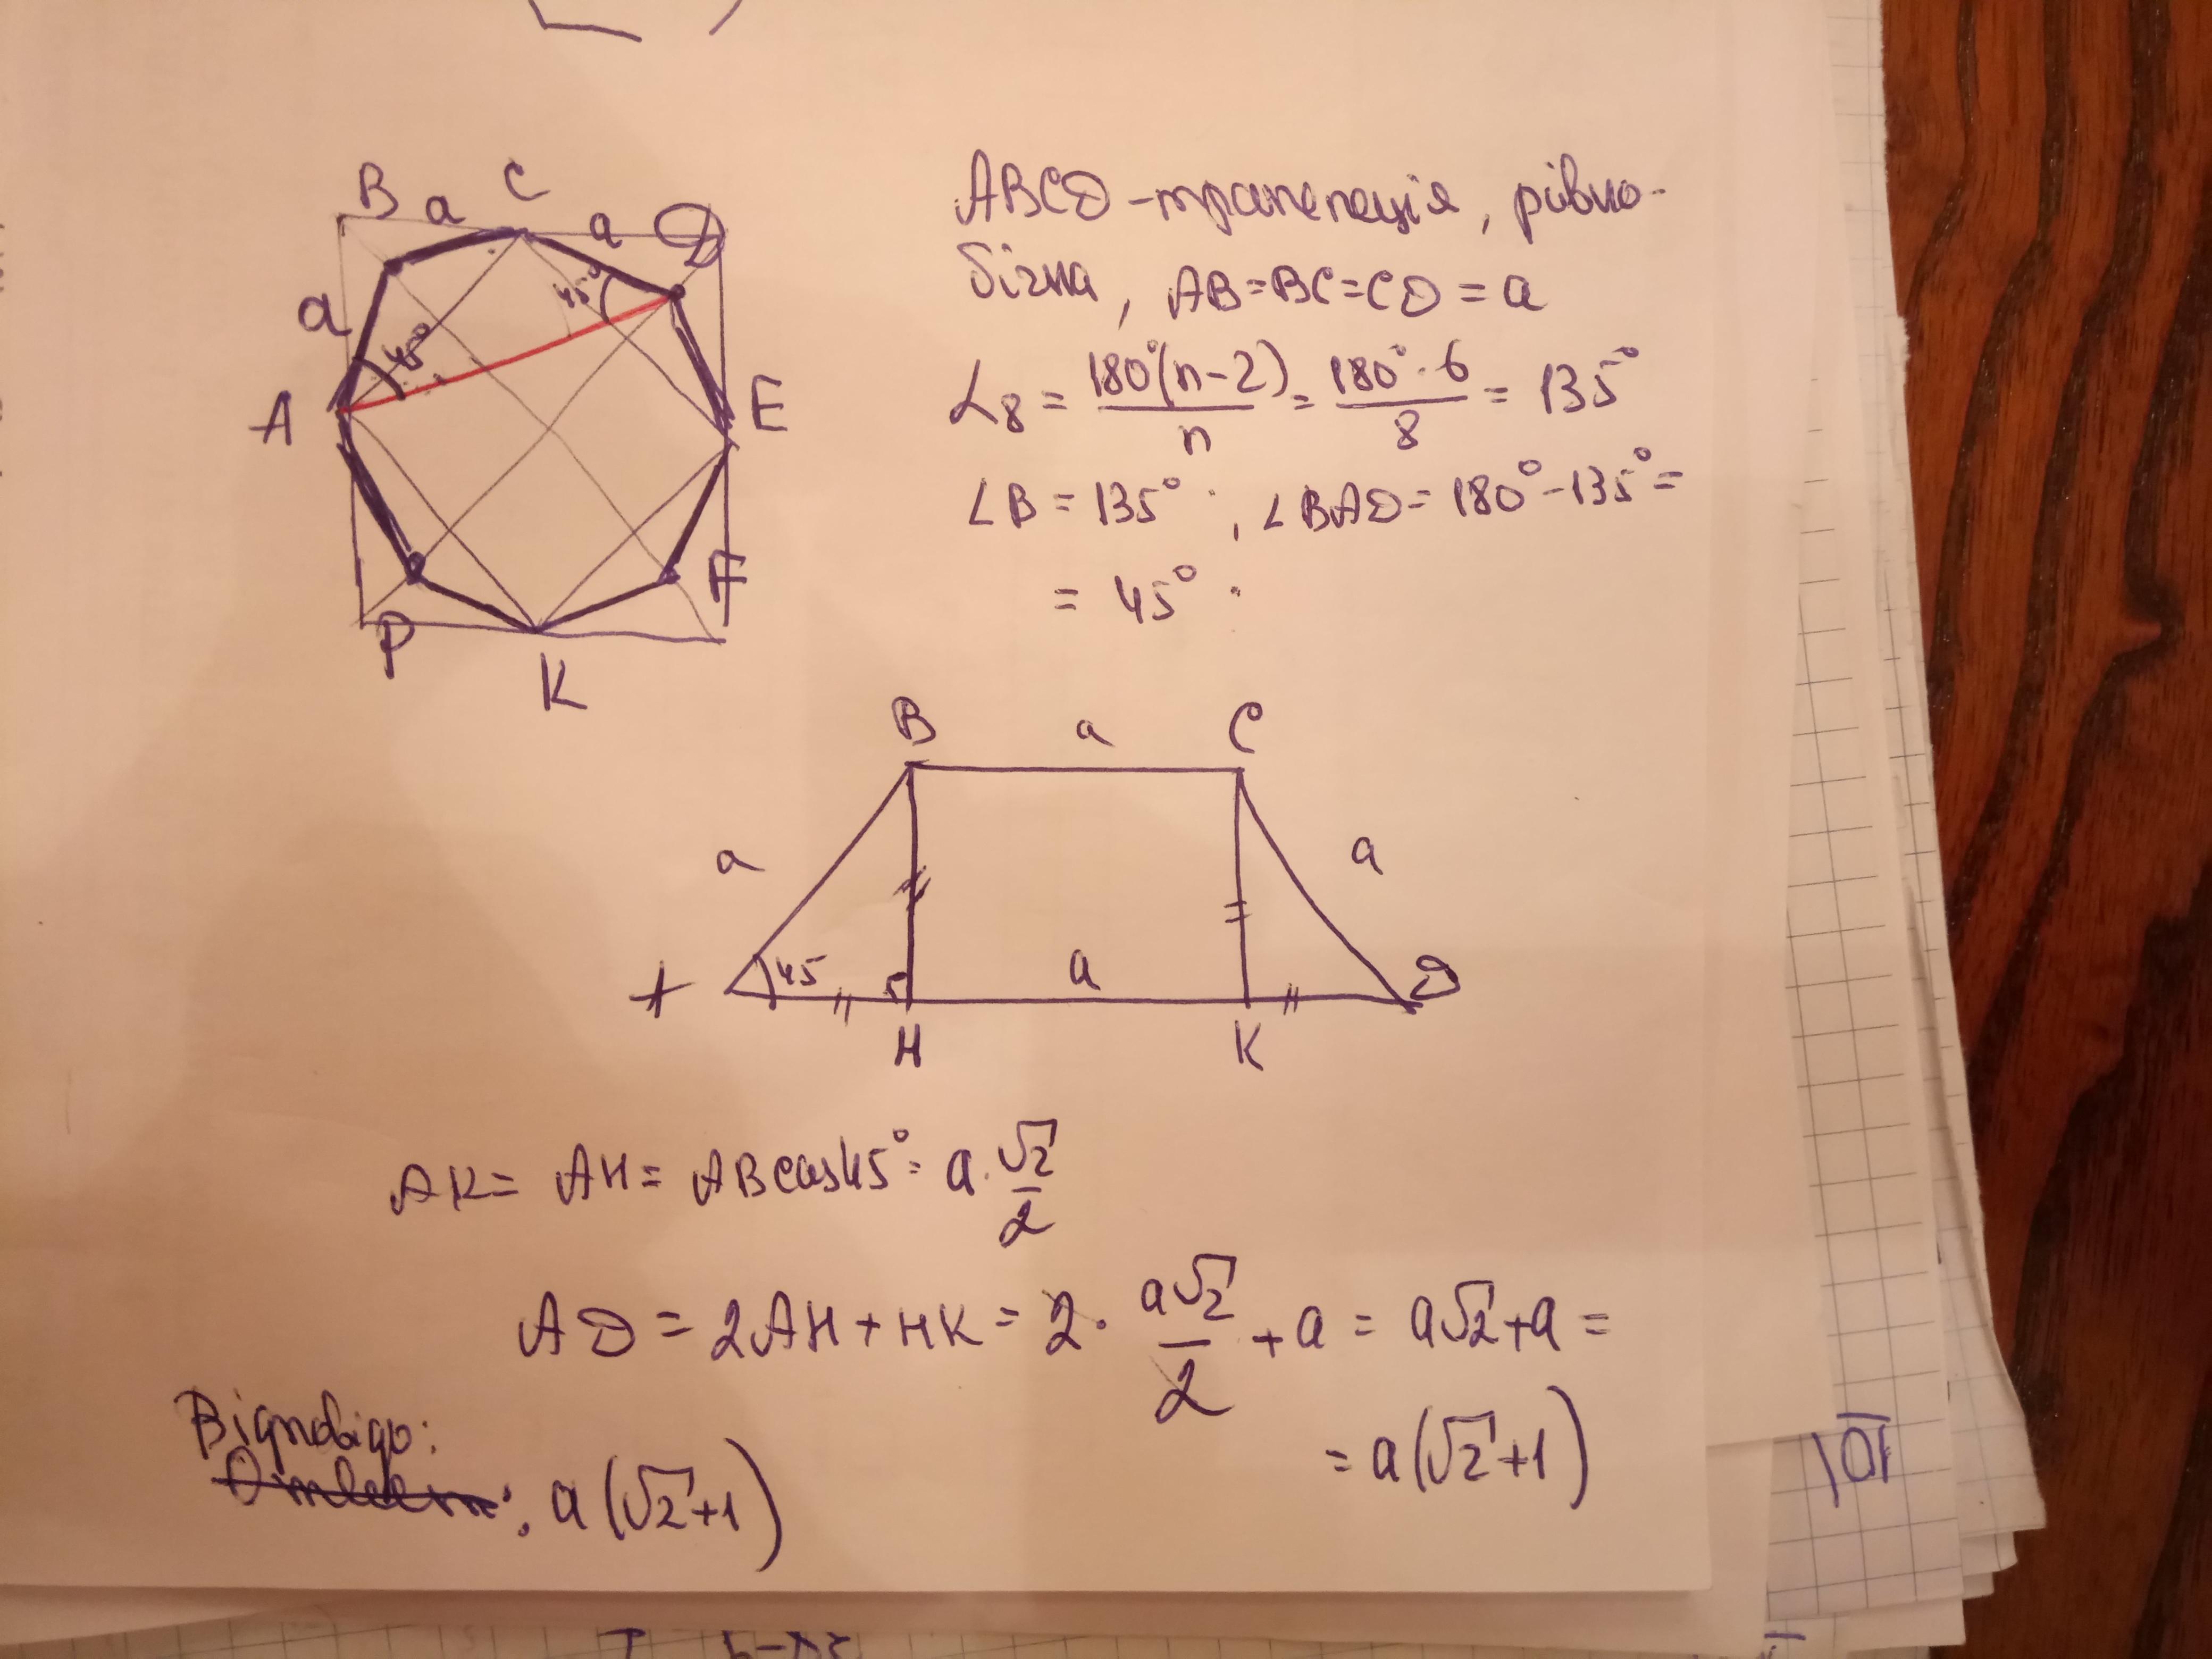 B a C a D
a 45° 45°
A E
P F
K
ABCD - трапеція, рівно-
бічна, AB=BC=CD = a
α₈ = 180°(n-2)/n = 180°·6/8 = 135°
∠B = 135° ; ∠BAD = 180°-135° =
= 45°.
B a C
a a
A 45 a D
H K
AK = AH = AB cos45° = a·√2/2
AD = 2AH + HK = 2· a√2/2 + a = a√2+a =
= a(√2+1)
Відповідь:
: a(√2+1)